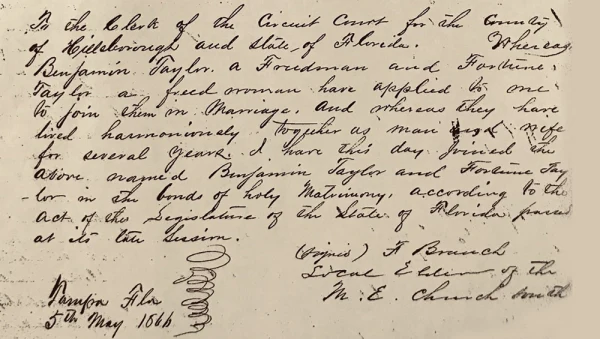 To the Clerk of the Circuit Court for the County
of Hillsborough and State of Florida. Whereas
Benjamin Taylor. a Freedman and Fortune
Taylor a freed woman have applied to me
to join them in Marriage. and whereas they have
lived harmoniously together as man and wife
for several years. I have this day Joined the
above named Benjamin Taylor and Fortune Tay
-lor in the bonds of holy Matrimony, according to the
act of the Legislature of the State of Florida passed
at its late Session.
(Signed) F Branch
Local Elder of the
M. E. Church South
Tampa Fla
5th May 1866